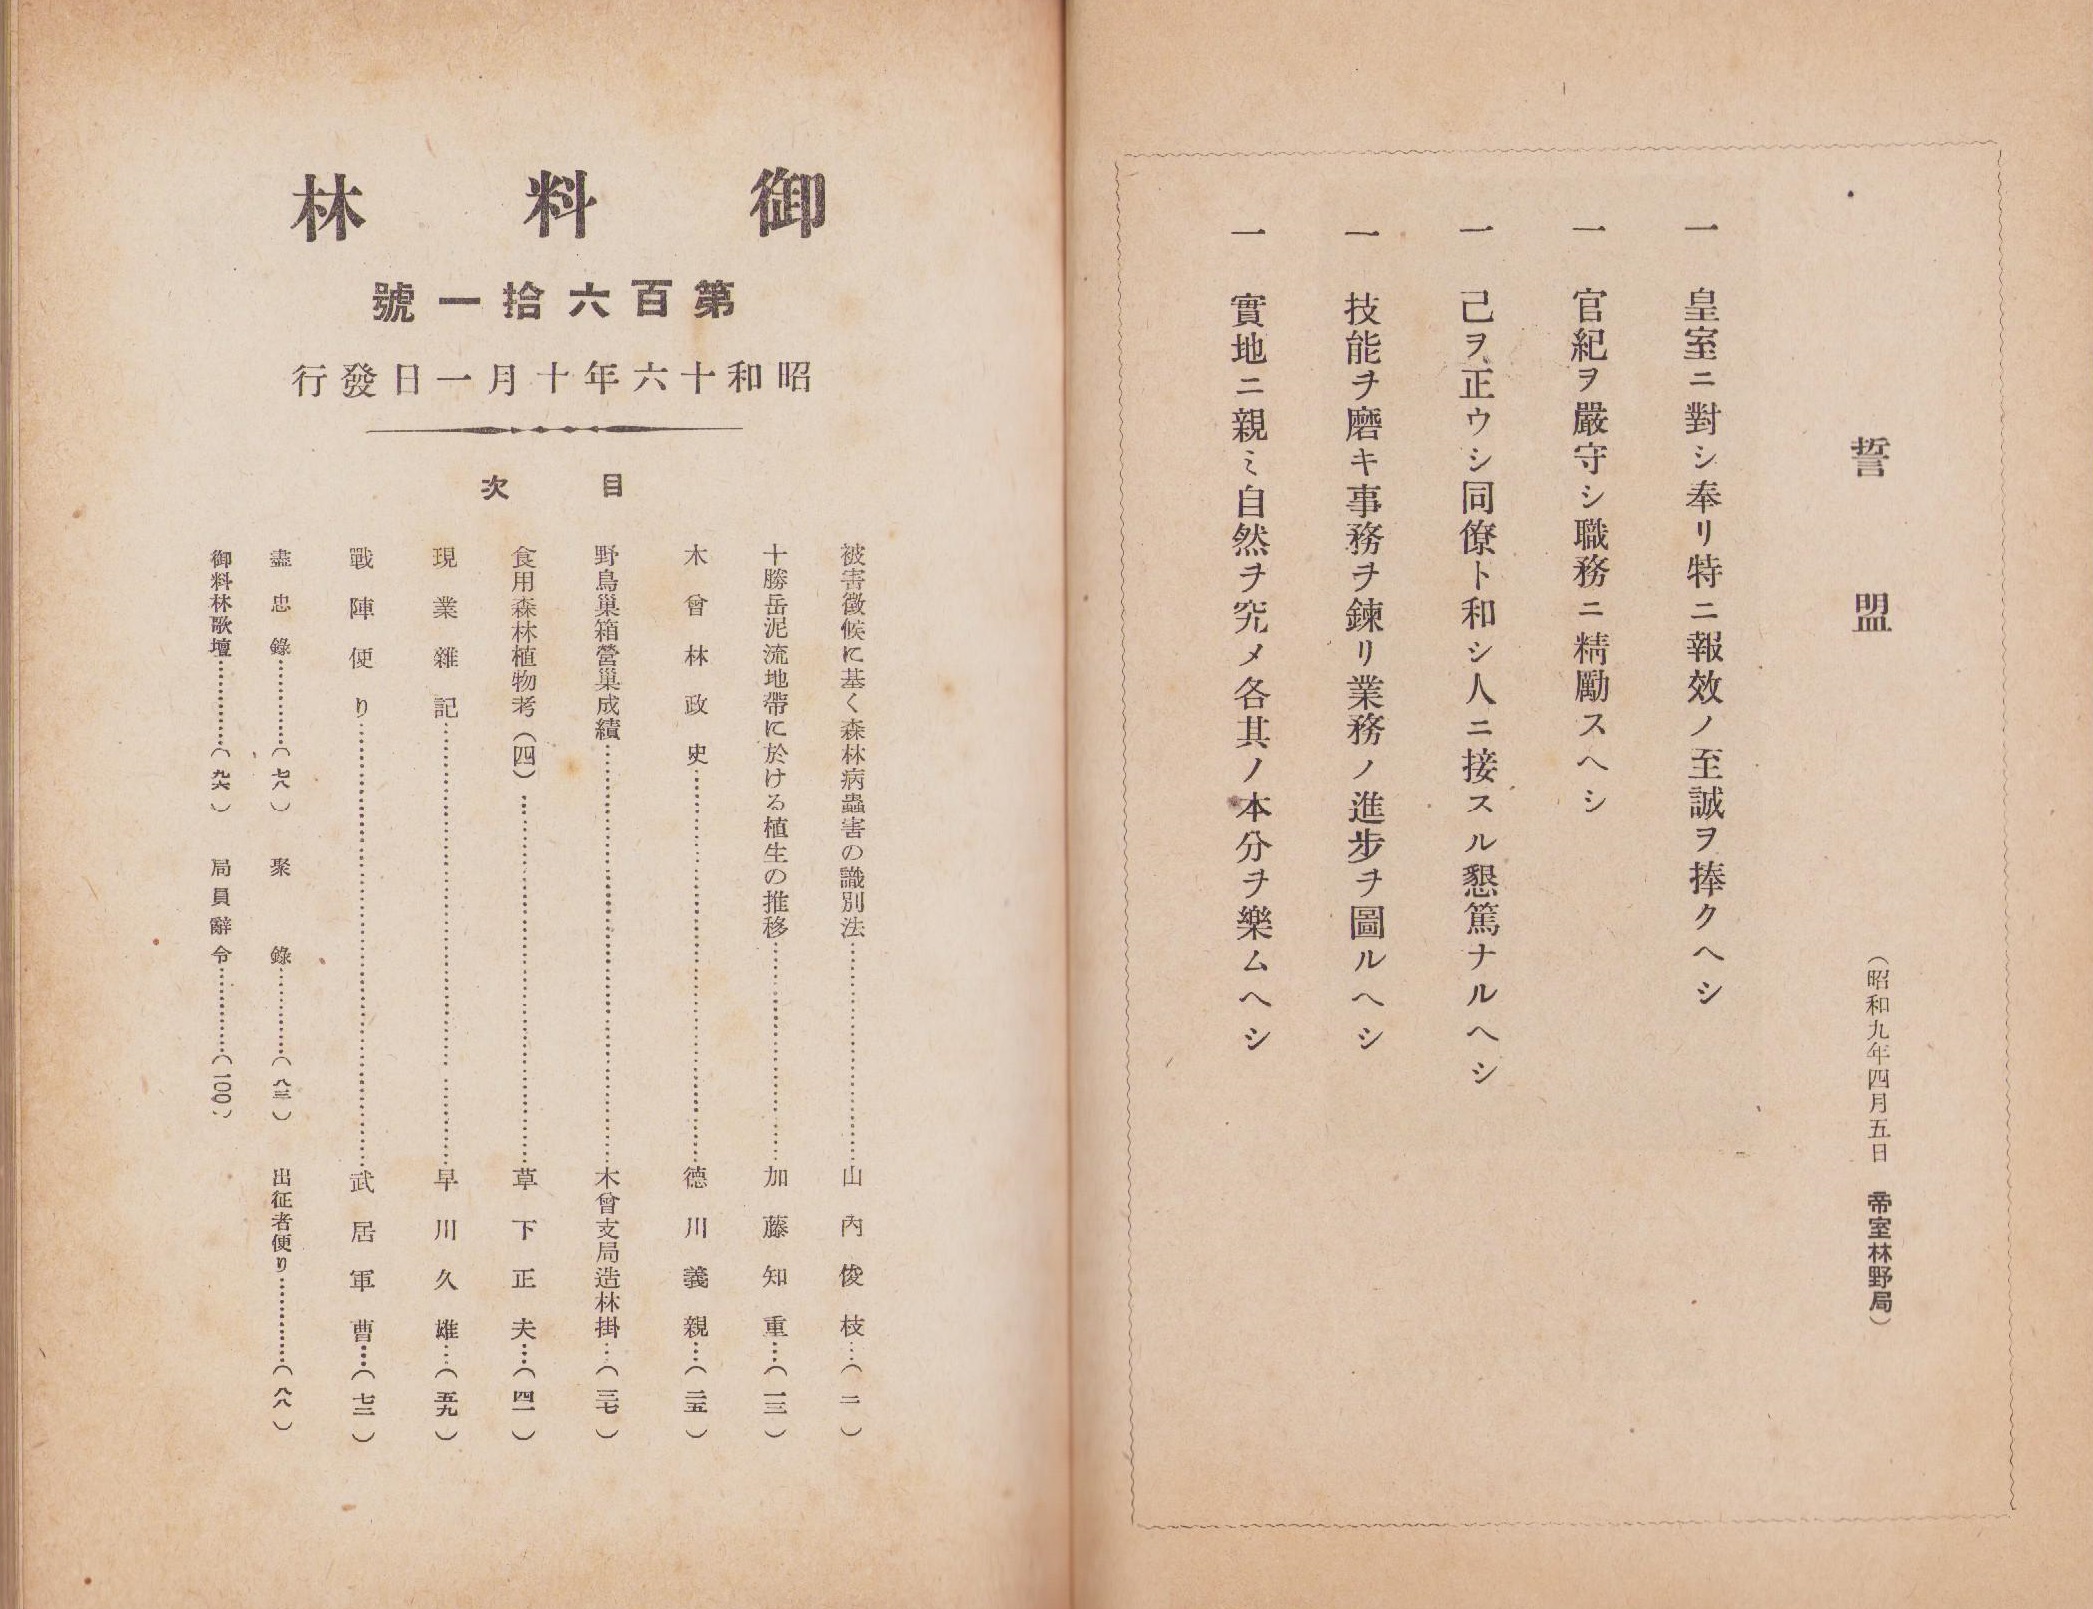 誓盟
(昭和九年四月五日 帝室林野局)
一 皇室ニ對シ奉リ特ニ報效ノ至誠ヲ捧クヘシ
一 官紀ヲ嚴守シ職務ニ精勵スヘシ
一 己ヲ正ウシ同僚ト和シ人ニ接スル懇篤ナルヘシ
一 技能ヲ磨キ事務ヲ鍊リ業務ノ進步ヲ圖ルヘシ
一 實地ニ親ミ自然ヲ究メ各其ノ本分ヲ樂ムヘシ
御料林
第百六拾一號
昭和十六年十月一日發行
目次
被害徵候に基く森林病蟲害の識別法……山內俊枝…(二)
十勝岳泥流地帶に於ける植生の推移……加藤知重…(一三)
木曾林政史……德川義親…(二五)
野鳥巢箱營巢成績……木曾支局造林掛…(三七)
食用森林植物考(四)……草下正夫…(四一)
現業雜記……早川久雄…(五九)
戰陣便り……武居軍曹…(七二)
盡忠錄……(七八) 聚錄……(八三) 出征者便り……(八八)
御料林歌壇……(九六) 局員辭令……(一〇〇)